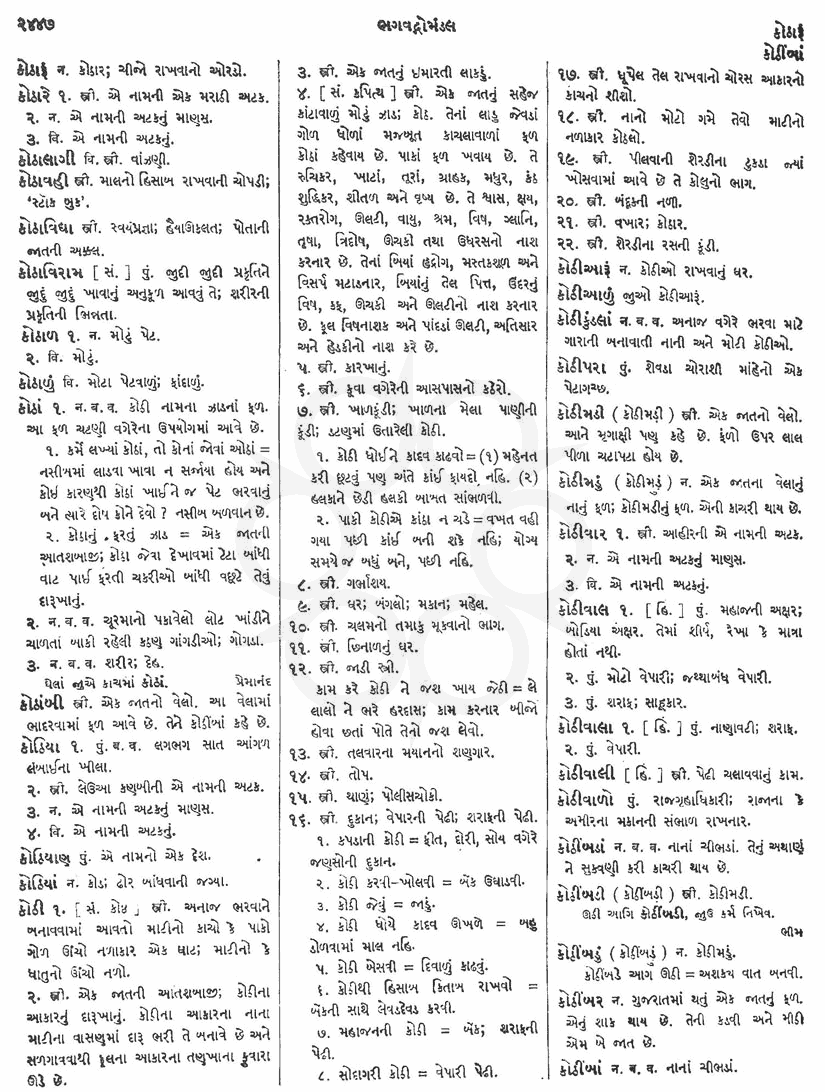 ૨૪૪૭
ભગવદ્ગોમંડલ
કોઠારૂં
કોઠીંબાં
કોઠારૂં ન. કોઠાર; ચીજો રાખવાનો ઓરડો.
કોઠારે ૧. સ્ત્રી. એ નામની એક મરાઠી અટક.
૨. ન. એ નામની અટકનું માણસ.
૩. વિ. એ નામની અટકનું.
કોઠાલાગી વિ. સ્ત્રી. વાંઝણી.
કોઠાવહી સ્ત્રી. માલનો હિસાબ રાખવાની ચોપડી;
‘સ્ટૉક બુક’.
કોઠાવિદ્યા સ્ત્રી. સ્વયંપ્રજ્ઞા; હૈયાઊકલત; પોતાની
જાતની અક્કલ.
કોઠાવિરામ [ સં. ] પું. જુદી જુદી પ્રકૃતિને
જુદું જુદું ખાવાનું અનુકૂળ આવવું તે; શરીરની
પ્રકૃતિની ભિન્નતા.
કોઠાળ ૧. ન. મોટું પેટ.
૨. વિ. મોટું.
કોઠાળું વિ. મોટા પેટવાળું; ફાંદાળું.
કોઠાં ૧. ન. બ. વ. કોઠી નામના ઝાડનાં ફળ.
આ ફળ ચટણી વગેરેના ઉપયોગમાં આવે છે.
૧. કર્મે લખ્યાં કોઠાં, તો કોનાં જોવાં ઓઠાં =
નસીબમાં લાડવા ખાવા ન સર્જાયા હોય અને
કોઈ કારણથી કોઠાં ખાઈને જ પેટ ભરવાનું
બને ત્યારે દોષ કોને દેવો ? નસીબ બળવાન છે.
૨. કોઠાનું ફરતું ઝાડ = એક જાતની
આતશબાજી; કોઠા જેવા દેખાવમાં ટેટા બાંધી
વાટ પાઈ ફરતી ચકરીઓ બાંધી વછૂટે તેવું
દારૂખાનું.
૨. ન. બ. વ. ચૂરમાનો પકાવેલો લોટ ખાંડીને
ચાળતાં બાકી રહેલી કઠણુ ગાંગડીઓ; ગોગડા.
૩. ન. બ. વ. શરીર; દેહ.
ઘેલાં જુએ કાચમાં કોઠાં. પ્રેમાનંદ
કોઠાંબી સ્ત્રી. એક જાતનો વેલો. આ વેલામાં
ભાદરવામાં ફળ આવે છે. તેને કોઠીંબાં કહે છે.
કોઠિયા ૧. પું. બ. વ. લગભગ સાત આંગળ
લંબાઈના ખીલા.
૨. સ્ત્રી. લેઉઆ કણબીની એ નામની અટક.
૩. ન. એ નામની અટકનું માણસ.
૪. વિ. એ નામની અટકનું.
કોઠિયાણ પું. એ નામનો એક દેશ.
કોઠિયાં ન. કોઢ; ઢોર બાંધવાની જગ્યા.
કોઠી ૧. [ સં. કોષ્ઠ ] સ્ત્રી. અનાજ ભરવાને
બનાવવામાં આવતો માટીનો કાચો કે પાકો
ગોળ ઊંચો નળાકાર એક ઘાટ; માટીનો કે
ધાતુનો ઊંચો નળો.
૨. સ્ત્રી. એક જાતની આતશબાજી; કોઠીના
આકારનું દારૂખાનું. કોઠીના આકારના નાના
માટીના વાસણમાં દારૂ ભરી તે બનાવે છે અને
સળગાવવાથી ફૂલના આકારના તણખાના ફુવારા
ઊડે છે.
૩. સ્ત્રી. એક જાતનું ઇમારતી લાકડું.
૪. [ સં. કપિત્થ ] સ્ત્રી. એક જાતનું સહેજ
કાંટાવાળું મોટું ઝાડ; કોઠ. તેનાં લાડુ જેવડાં
ગોળ ધોળાં મજબૂત કાચલાવાળાં ફળ
કોઠાં કહેવાય છે. પાકાં ફળ ખવાય છે. તે
રુચિકર, ખાટાં, તૂરાં, ગ્રાહક, મધુર, કંઠ
શુદ્ધિકર, શીતળ અને વૃષ્ય છે. તે શ્વાસ, ક્ષય,
રક્તરોગ, ઊલટી, વાયુ, શ્રમ, વિષ, ગ્લાનિ,
તૃષા, ત્રિદોષ, ઊચકી તથા ઉધરસનો નાશ
કરનાર છે. તેનાં બિયાં હૃદ્રોગ, મસ્તકશૂળ અને
વિસર્પ મટાડનાર, બિયાંનું તેલ પિત્ત, ઉંદરનું
વિષ, કફ, ઊચકી અને ઊલટીનો નાશ કરનાર
છે. ફૂલ વિષનાશક અને પાંદડાં ઊલટી, અતિસાર
અને હેડકીનો નાશ કરે છે.
૫. સ્ત્રી. કારખાનું.
૬. સ્ત્રી. કૂવા વગેરેની આસપાસનો કઠેરો.
૭. સ્ત્રી. ખાળકૂંડી; ખાળના મેલા પાણીની
કૂંડી; દટણમાં ઉતારેલી કોઠી.
૧. કોઠી ધોઈને કાદવ કાઢવો = (૧) મહેનત
કરી છૂટવું પણ અંતે કાંઈ ફાયદો નહિ. (૨)
હલકાને છેડી હલકી બાબત સાંભળવી.
૨. પાકી કોઠીએ કાંઠા ન ચડે = વખત વહી
ગયા પછી કાંઈ બની શકે નહિ; યોગ્ય
સમયે જ બધું બને, પછી નહિ.
૮. સ્ત્રી. ગર્ભાશય.
૯. સ્ત્રી. ઘર; બંગલો; મકાન; મહેલ.
૧૦. સ્ત્રી. ચલમનો તમાકુ મૂકવાનો ભાગ.
૧૧. સ્ત્રી. છિનાળનું ઘર.
૧૨. સ્ત્રી. જાડી સ્ત્રી.
કામ કરે કોઠી ને જશ ખાય જેઠી = લે
લાલો ને ભરે હરદાસ; કામ કરનાર બીજો
હોવા છતાં પોતે તેનો જશ લેવો.
૧૩. સ્ત્રી. તલવારના મ્યાનનો શણગાર.
૧૪. સ્ત્રી. તોપ.
૧૫. સ્ત્રી. થાણું; પોલીસચોકી.
૧૬. સ્ત્રી. દુકાન; વેપારની પેઢી; શરાફની પેઢી.
૧. કપડાની કોઠી = ફીત, દોરી, સોય વગેરે
જણસોની દુકાન.
૨. કોઠી કરવી-ખોલવી = બૅંક ઉઘાડવી.
૩. કોઠી જેવું = જાડું.
૪. કોઠી ધોયે કાદવ ઊખળે = બહુ
ડોળવામાં માલ નહિ.
૫. કોઠી બેસવી = દિવાળું કાઢવું.
૬. કોઠીથી હિસાબ કિતાબ રાખવો =
બૅંકની સાથે લેવડદેવડ કરવી.
૭. મહાજનની કોઠી = બૅંક; શરાફની
પેઢી.
૮. સોદાગરી કોઠી = વેપારી પેઢી.
૧૭. સ્ત્રી. ધૂપેલ તેલ રાખવાનો ચોરસ આકારનો
કાચનો શીશો.
૧૮. સ્ત્રી. નાનો મોટો ગમે તેવો માટીનો
નળાકાર કોઠલો.
૧૯. સ્ત્રી. પીલવાની શેરડીના ટુકડા જ્યાં
ખોસવામાં આવે છે તે કોલુનો ભાગ.
૨૦. સ્ત્રી. બંદૂકની નળી.
૨૧. સ્ત્રી. વખાર; કોઠાર.
૨૨. સ્ત્રી. શેરડીના રસની કૂંડી.
કોઠીઆરૂં ન. કોઠીઓ રાખવાનું ઘર.
કોઠીઆળું જુઓ કોઠીઆરૂં.
કોઠીકુંડલાં ન. બ. વ. અનાજ વગેરે ભરવા માટે
ગારાની બનાવાતી નાની અને મોટી કોઠીઓ.
કોઠીપરા પું. શેવડા ચોરાશી માંહેનો એક
પેટાગચ્છ.
કોઠીમડી ( કોઠીમડી઼ ) સ્ત્રી. એક જાતનો વેલો.
આને મૃગાક્ષી પણ કહે છે. ફળો ઉપર લાલ
પીળા ચટાપટા હોય છે.
કોઠીમડું ( કોઠીમડું઼ ) ન. એક જાતના વેલાનું
નાનું ફળ; કોઠીમડીનું ફળ. એની કાચરી થાય છે.
કોઠીવાર ૧. સ્ત્રી. આહીરની એ નામની અટક.
૨. ન. એ નામની અટકનું માણસ.
૩. વિ. એ નામની અટકનું.
કોઠીવાલ ૧. [ હિ. ] પું. મહાજની અક્ષર;
બોડિયા અક્ષર. તેમાં શીર્ષ, રેખા કે માત્રા
હોતાં નથી.
૨. પું. મોટો વેપારી; જથ્થાબંધ વેપારી.
૩. પું. શરાફ; સાહૂકાર.
કોઠીવાલા ૧. [ હિં. ] પું. નાણાવટી; શરાફ.
૨. પું. વેપારી.
કોઠીવાલી [ હિં. ] સ્ત્રી. પેઢી ચલાવવાનું કામ.
કોઠીવાળો પું. રાજગૃહાધિકારી; રાજાના કે
અમીરના મકાનની સંભાળ રાખનાર.
કોઠીંબડાં ન. બ. વ. નાનાં ચીભડાં. તેનું અથાણું
ને સુકવણી કરી કાચરી થાય છે.
કોઠીંબડી ( કોઠીંબડી઼ ) સ્ત્રી. કોઠીમડી.
ઊડી આગિ કોઠીંબડી, જુઉ કર્મ નિખેવ.
ભીમ
કોઠીંબડું ( કોઠીંબડું઼ ) ન. કોઠીમડું.
કોઠીંબડે આગ ઊઠી = અશક્ય વાત બનવી.
કોઠીંબર ન. ગુજરાતમાં થતું એક જાતનું ફળ.
એનું શાક થાય છે. તેની કડવી અને મીઠી
એમ બે જાત છે.
કોઠીંબાં ન. બ. વ. નાનાં ચીભડાં.